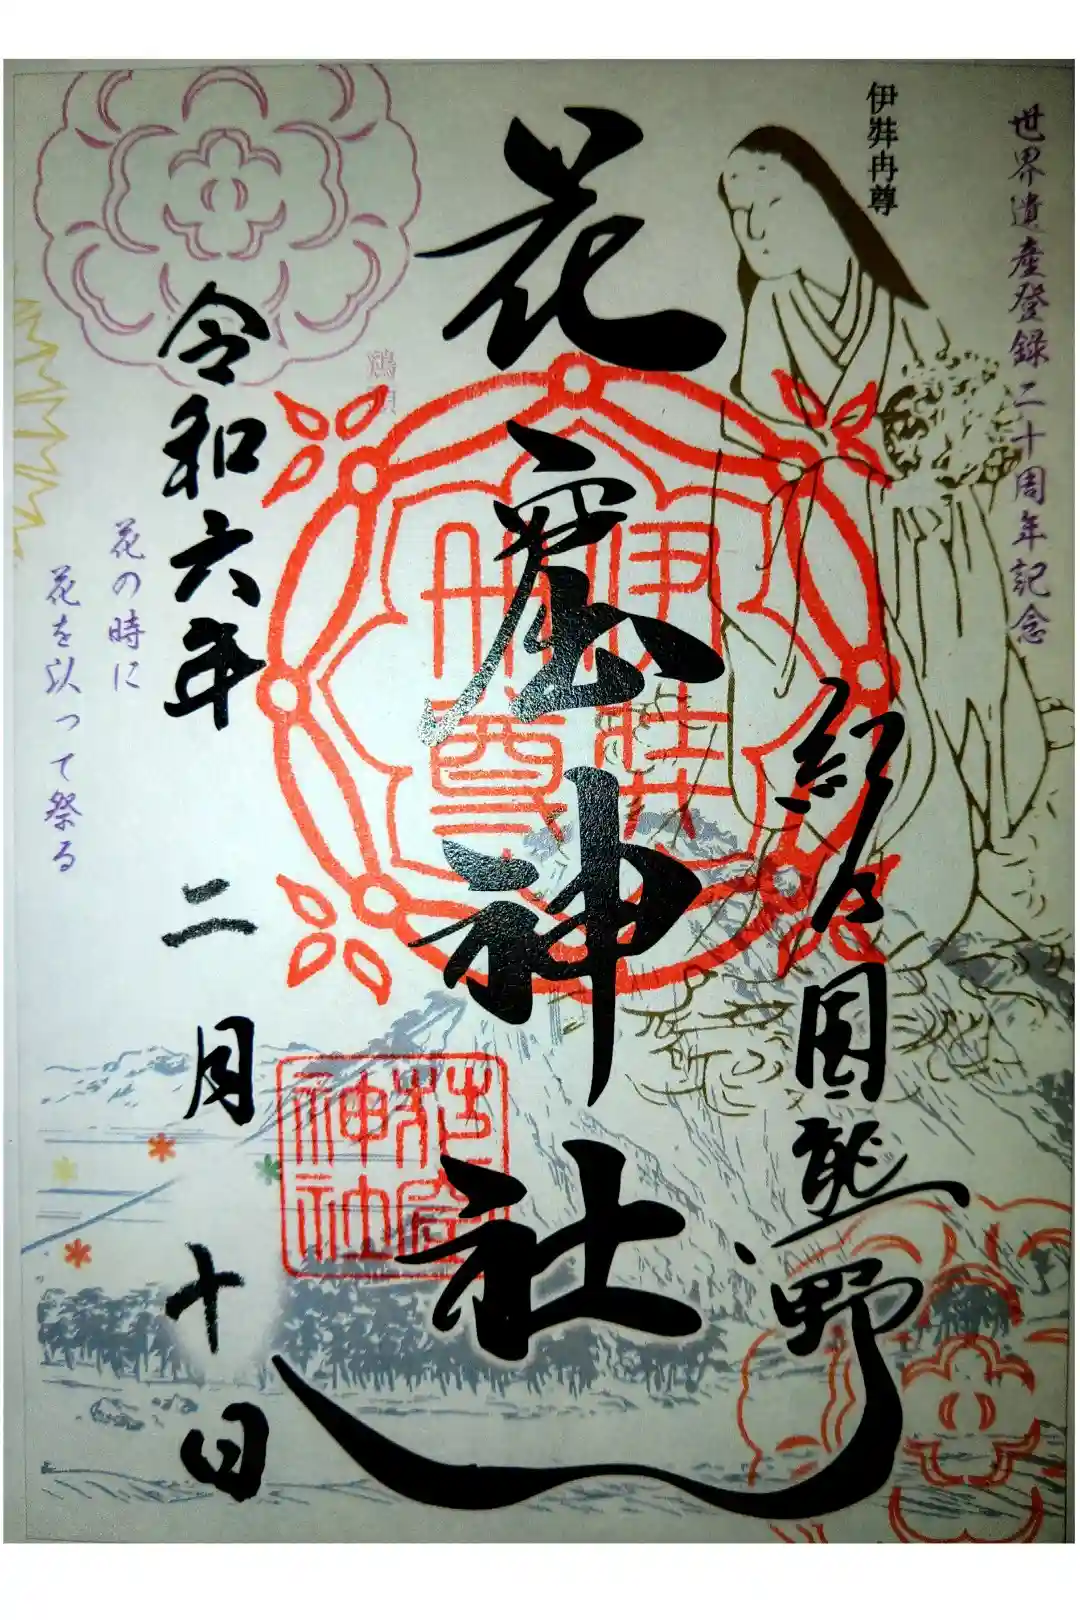 世界遺産登録二十周年記念
伊弉冉尊
紀の国熊野
花窟神社
伊弉
冊尊
花窟
神社
令和六年 二月 十日
花の時に
花を以って祭る